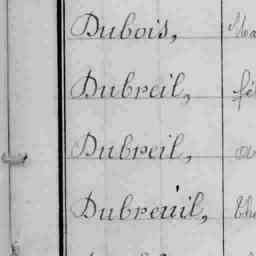 Dubois,
Dubreil,
Dubreil,
Dubreuil,